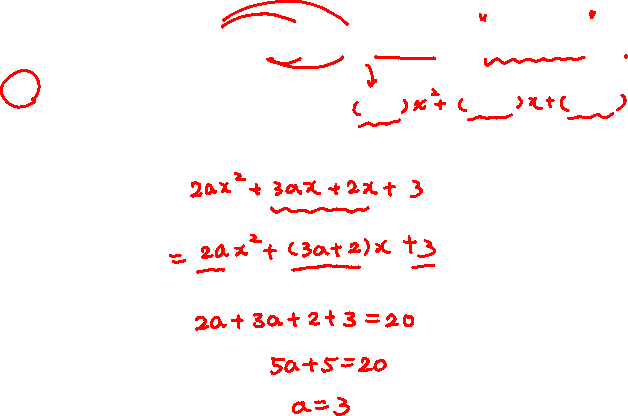 " "
( )x²+( )x+( )
2ax²+3ax+2x+3
=2ax²+(3a+2)x+3
2a+3a+2+3=20
5a+5=20
a=3